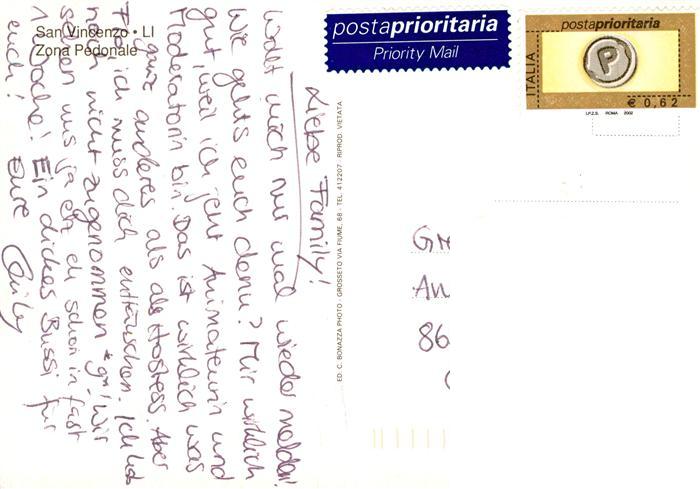 San Vincenzo - LI
Zona Pedonale
Liebe Family!
Wollt mich nur mal wieder melden!
Wie gehts euch denn? Mir wirklich
gut, weil ich jetzt Animateurin und
Moderatorin bin. Das ist wirklich was
ganz anderes als als Hostess. Aber
ich muss dich enttäuschen. Ich hab
noch nicht zugenommen *gr* Wir
sehen uns ja eh schon in fast
1 Woche! Ein dickes Bussi für
euch! Eure
ED. C. BONAZZA PHOTO - GROSSETO VIA FIUME, 68 - TEL. 412207 - RIPROD. VIETATA
postaprioritaria
Priority Mail
postaprioritaria
ITALIA
P
€ 0,62
I.P.Z.S. ROMA 2002
An
86